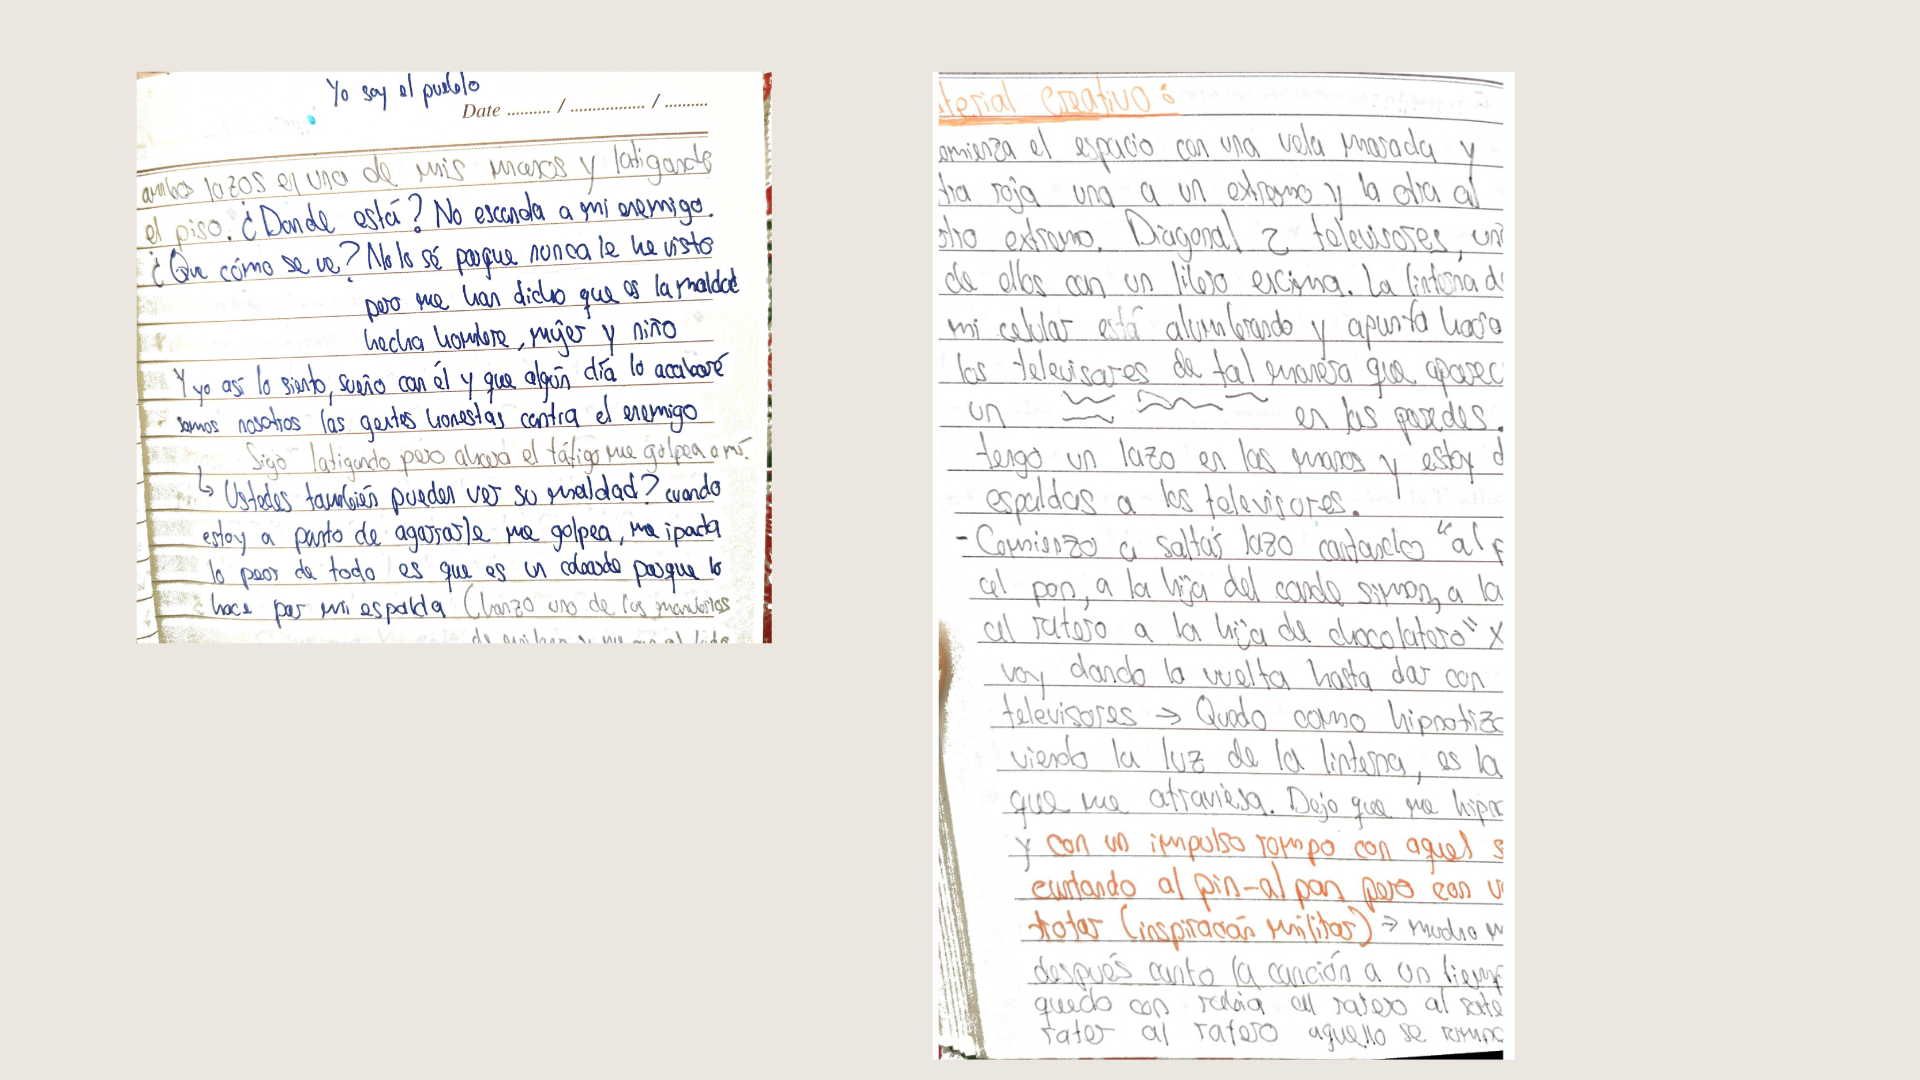 Yo soy el pueblo
Date .......... / ................. / ..........
ambos lazos en una de mis manos y latigando
el piso. ¿Donde está? No esconda a mi enemigo.
¿Que cómo se ve? No lo sé porque nunca le he visto
pero me han dicho que es la maldad
hecha hombre, mujer y niño
Y yo así lo siento, sueño con él y que algún día lo acabaré
somos nosotros las gentes honestas contra el enemigo
Sigo latigando pero ahora el látigo me golpea a mí.
↳ Ustedes también pueden ver su maldad? cuando
estoy a punto de agarrarle me golpea, me
lo peor de todo es que es un cobarde porque lo
hace por mi espalda (Lanzo uno de los
terial creativo:
omienza el espacio con una vela morada y
tra roja una a un extremo y la otra al
otro extremo. Diagonal 2 televisores, un
de ellos con un encima. La linterna d
mi celular está alumbrando y apunta hacia
los televisores de tal manera que aparec
un en las paredes.
tengo un lazo en las manos y estoy d
espaldas a los televisores.
- Comienzo a saltar lazo cantando "al p
al pon, a la hija del conde simon, a la
al ratero a la hija de chocolatero" x
voy dando la vuelta hasta dar con
televisores → Quedo como hipnotiza
viendo la luz de la linterna, es la
que me atraviesa. Dejo que me hipn
y con un impulso rompo con aquel s
cantando al pin-al pon pero con u
trotar (inspiración militar) → mucho m
después canto la canción a un tiemp
quedo con rabia al ratero al rate
rater al ratero aquello se rompe